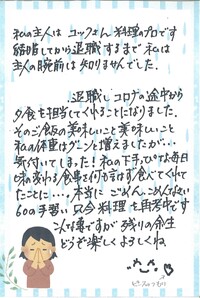 私の主人は コックさん 料理のプロです
結婚してから退職するまで 私は
主人の腕前は 知りませんでした。
退職し コロナの途中から
夕食を担当してくれることになりました。
そのご飯の美しいこと美味しいこと
私の体重はグーンと増えましたが…
気付いてしまった！私の下手っぴいな毎日
変わる食事を何も言わず食べてくれて
たことに…. 本当に ごめん ごめんなさい
60の手習い 只今料理を再考中です
こんな妻ですが 残りの余生
どうぞ楽しくよろしくね
ピースのつもり